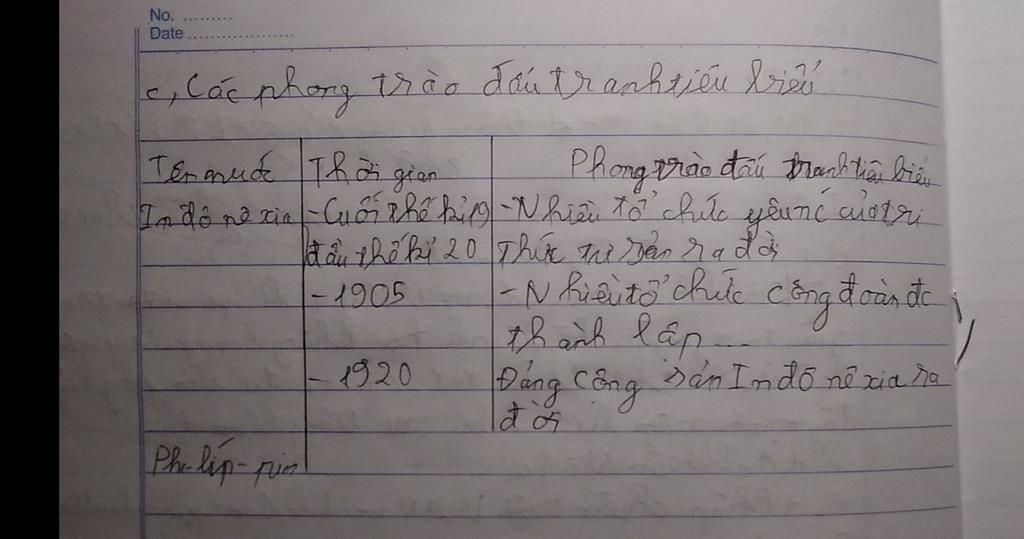 No. ........
Date ....................
c, Các phong trào đấu tranh tiêu biểu
Tên nước Thời gian Phong trào đấu tranh tiêu biểu
In đô nê xia - Cuối thế kỉ 19 - Nhiều tổ chức yêu nc của tri
đầu thế kỉ 20 thức tư sản ra đời
- 1905 - Nhiều tổ chức công đoàn đc
thành lập...
- 1920 Đảng cộng sản In đô nê xia ra
đời
Phi-líp-pin